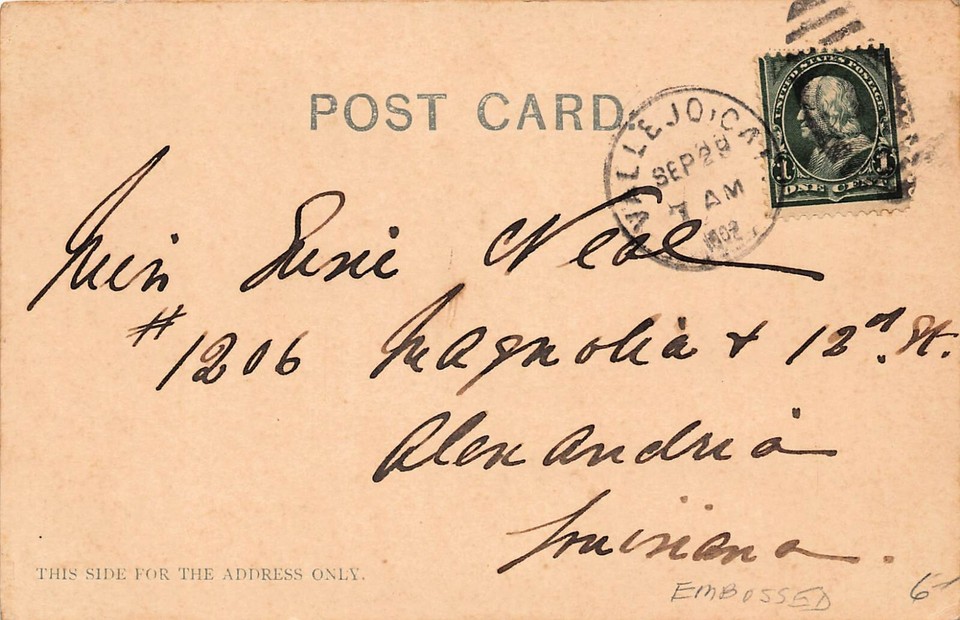 POST CARD.
VALLEJO, CAL.
SEP 29
7 AM
1902
UNITED STATES POSTAGE
1 1
ONE CENT
Miss Susie Neal
#1206 Magnolia + 12d. St.
Alexandria
Louisiana.
THIS SIDE FOR THE ADDRESS ONLY.
EMBOSSED
6-